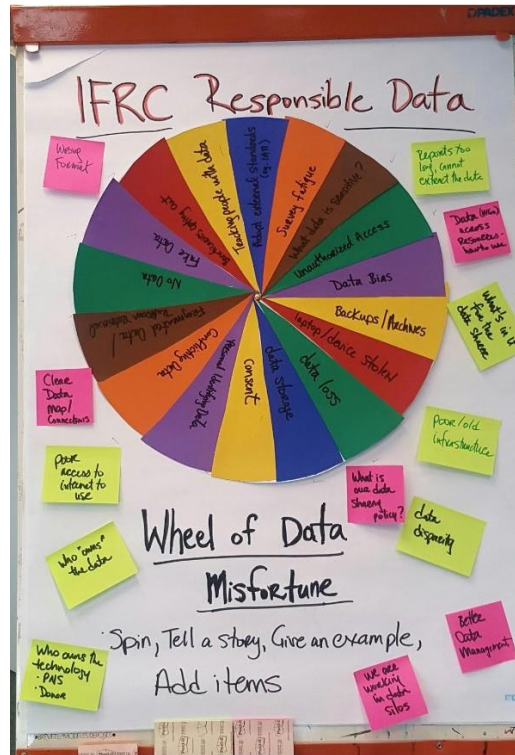 DPADEX
IFRC Responsible Data
Wrong
Format
Reports too
long, cannot
extract the data
Data
across
Resources-
how to use
What's in it
for the
data sharer
Poor/old
infrastructure
data
disparity
Better
Data
Management
What is
our data
sharing
policy?
we are
working
in data
silos
Clear
Data
Map/
Connections
Poor
access to
internet to
use
Who "owns"
the data
Who owns the
technology
• PNS
• Donor
Adopt external standards
Survey fatigue
What data is sensitive?
Unauthorized Access
Data Bias
Backups/Archives
laptop/device stolen
data loss
data storage
Consent
Personal Identifying Data
Conflicting Data
Fragmented Data/
No Data
Fake Data
Tracking people with data
Wheel of Data
Misfortune
Spin, Tell a story, Give an example,
Add items